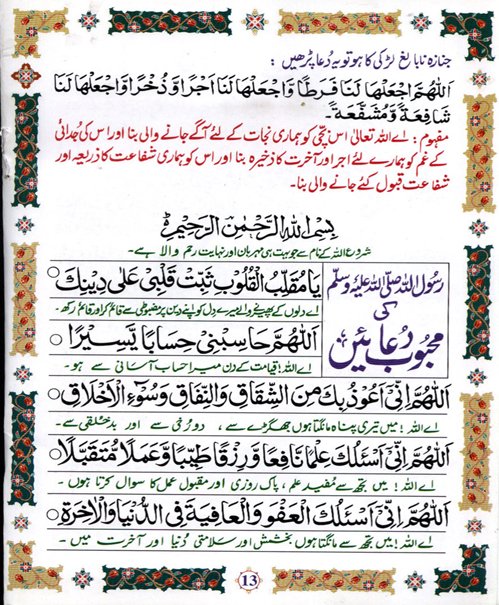 جنازہ نابالغ لڑکی کا ہو تو یہ دُعا پڑھیں :
اَللّٰهُمَّ اجْعَلْهَا لَنَا فَرَطًا وَّاجْعَلْهَا لَنَا اَجْرًا وَّذُخْرًا وَّاجْعَلْهَا لَنَا
شَافِعَةً وَّمُشَفَّعَةً۔
مفہوم : اے اللہ تعالیٰ اس بچی کو ہماری نجات کے لئے آگے جانے والی بنا اور اس کی جُدائی
کے غم کو ہمارے لئے اجر اور آخرت کا ذخیرہ بنا اور اس کو ہماری شفاعت کا ذریعہ اور
شفاعت قبول کئے جانے والی بنا۔
بِسْمِ اللهِ الرَّحْمٰنِ الرَّحِيْمِ
شروع اللہ کے نام سے جو بہت ہی مہربان اور نہایت رحم والا ہے۔
رسول اللہ صلی اللہ علیہ وسلم
کی
محبوب دُعائیں
يَا مُقَلِّبَ الْقُلُوْبِ ثَبِّتْ قَلْبِيْ عَلٰى دِيْنِكَ
اے دلوں کے پھیرنے والے میرے دل کو اپنے دین پر مضبوطی سے قائم کر اور قائم رکھ۔
اَللّٰهُمَّ حَاسِبْنِيْ حِسَابًا يَّسِيْرًا
اے اللہ! قیامت کے دن میرا حساب آسانی سے ہو۔
اَللّٰهُمَّ اِنِّيْ اَعُوْذُ بِكَ مِنَ الشِّقَاقِ وَالنِّفَاقِ وَسُوْٓءِ الْاَخْلَاقِ
اے اللہ! میں تیری پناہ مانگتا ہوں جھگڑے سے، دو رُخی سے اور بد خلقی سے۔
اَللّٰهُمَّ اِنِّيْ اَسْئَلُكَ عِلْمًا نَّافِعًا وَّرِزْقًا طَيِّبًا وَّعَمَلًا مُّتَقَبَّلًا
اے اللہ! میں تجھ سے مُفید علم، پاک روزی اور مقبول عمل کا سوال کرتا ہوں۔
اَللّٰهُمَّ اِنِّيْ اَسْئَلُكَ الْعَفْوَ وَالْعَافِيَةَ فِي الدُّنْيَا وَالْاٰخِرَةِ
اے اللہ! میں تجھ سے مانگتا ہوں بخشش اور سلامتی دُنیا اور آخرت میں۔
13